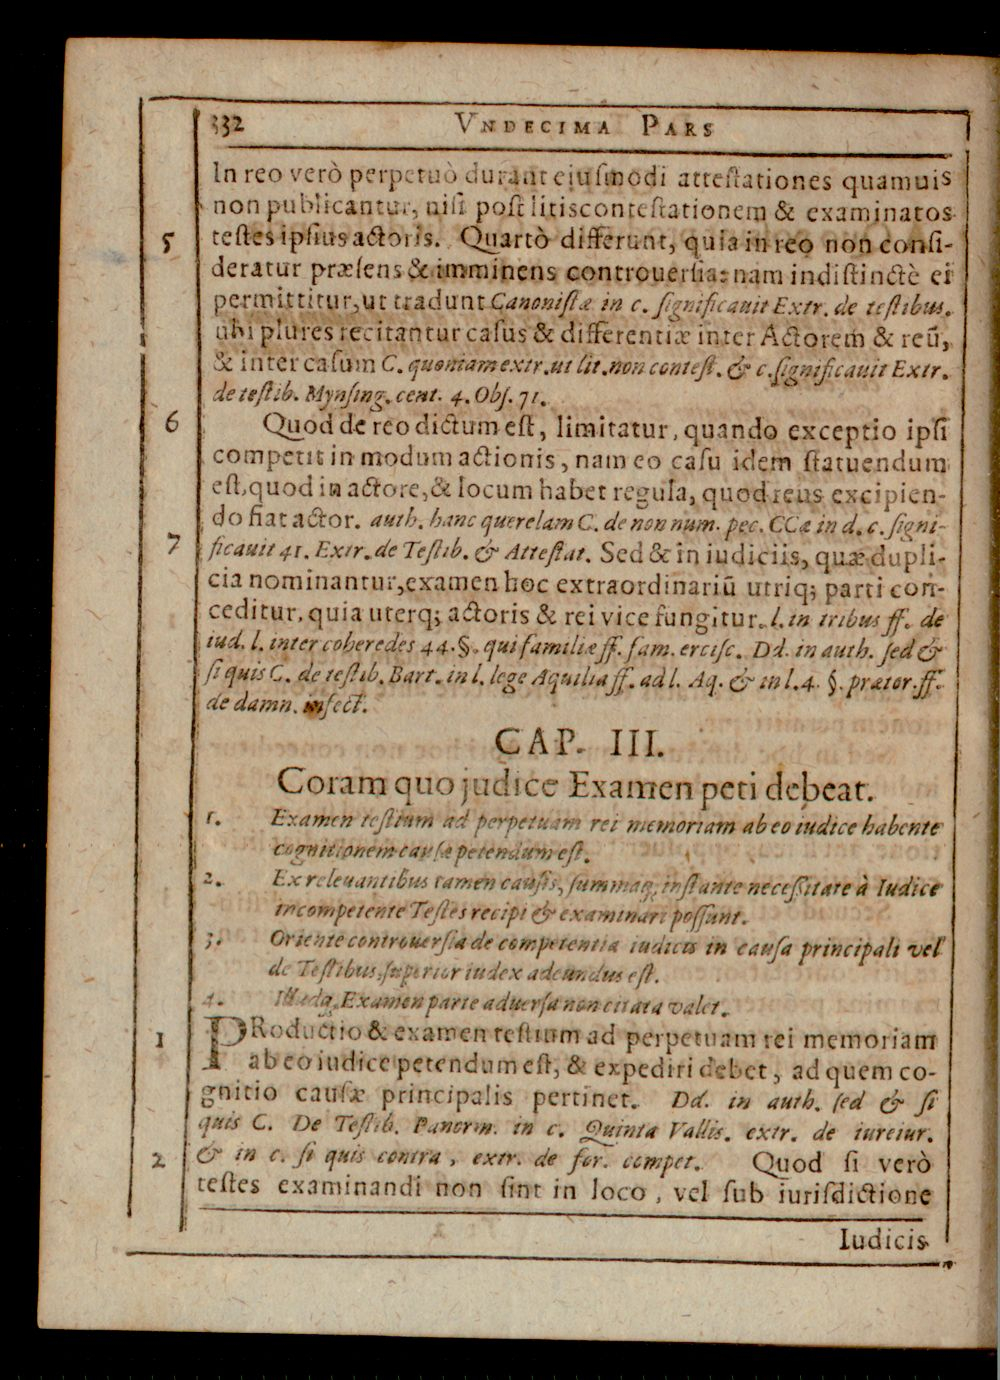 332 VNDECIMA PARS
In reo verò perpetuò durant eiuſmodi atteſtationes quamuis
non publicantur, niſi poſt litisconteſtationem & examinatos
5 teſtes ipſius actoris. Quartò differunt, quia in reo non conſi-
deratur præſens & imminens controuerſia: nam indiſtinctè ei
permittitur, ut tradunt Canoniſtæ in c. ſignificauit Extr. de teſtibus.
ubi plures recitantur caſus & differentiæ inter Actorem & reũ,
& inter caſum C. quoniam extr. ut lit. non conteſt. & c. ſignificauit Extr.
de teſtib. Mynſing. cent. 4. Obſ. 71.
6 Quod de reo dictum eſt, limitatur, quando exceptio ipſi
competit in modum actionis, nam eo caſu idem ſtatuendum
eſt, quod in actore, & locum habet regula, quod reus excipien-
do fiat actor. auth. hanc querelam C. de non num. pec. CCæ in d. c. ſigni-
7 ficauit 41. Extr. de Teſtib. & Atteſtat. Sed & in iudiciis, quæ dupli-
cia nominantur, examen hoc extraordinariũ utriq; parti con-
ceditur, quia uterq; actoris & rei vice fungitur. l. in tribus ff. de
iud. l. inter coheredes 44. §. qui familiæ ff. fam. erciſc. Dd. in auth. ſed &
ſi quis C. de teſtib. Bart. in l. lege Aquilia ff. ad l. Aq. & in l. 4. §. prætor. ff.
de damn. infect.
CAP. III.
Coram quo judice Examen peti debeat.
1. Examen teſtium ad perpetuam rei memoriam ab eo iudice habente
cognitionem cauſæ petendum eſt.
2. Ex releuantibus tamen cauſis, ſummaq; inſtante neceſſitate à Iudice
incompetente Teſtes recipi & examinari poſſunt.
3. Oriente controuerſia de competentia iudicis in cauſa principali vel
de Teſtibus, ſuperior iudex adeundus eſt.
4. Examen parte aduerſa non citata valet.
1 PRoductio & examen teſtium ad perpetuam rei memoriam
ab eo iudice petendum eſt, & expediri debet, ad quem co-
gnitio cauſæ principalis pertinet. Dd. in auth. ſed & ſi
quis C. De Teſtib. Panorm. in c. Quinta Vallis. extr. de iureiur.
2 & in c. ſi quis contra, extr. de for. compet. Quod ſi verò
teſtes examinandi non ſint in loco, vel ſub iurisdictione
Iudicis